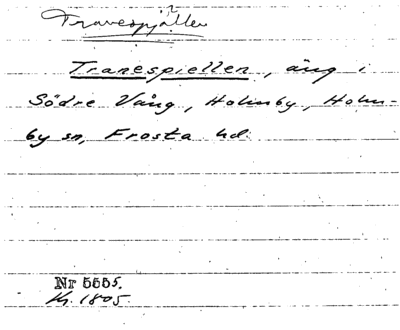 Tranespjällen
Tranespiellen, äng i
Södre Vång, Holmby, Holm-
by sn, Frosta hd.
Nr 5555.
Kr. 1805.